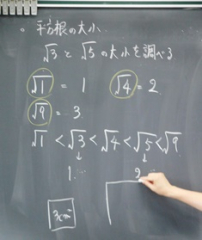 ・平方根の大小
√3 と √5 の大小を調べる
√1 = 1 √4 = 2
√9 = 3
√1 < √3 < √4 < √5 < √9
↓ ↓
1. 2